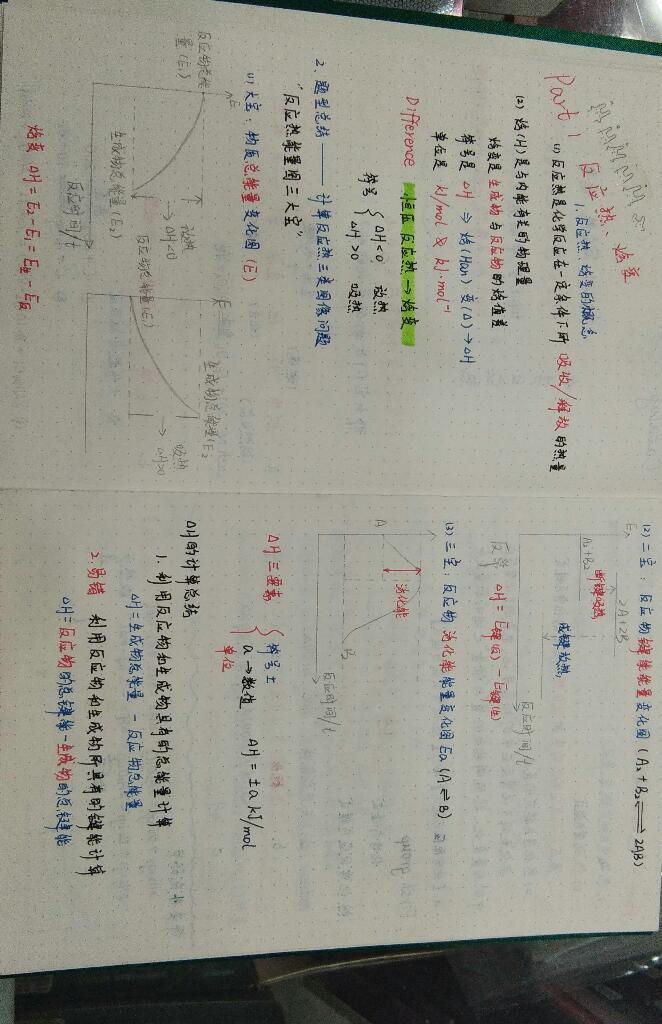 Part 1 反应热、焓变
1. 反应热、焓变的概念
(1) 反应热是化学反应在一定条件下所 吸收/释放 的热量
(2) 焓(H)是与内能有关的物理量
焓变是生成物与反应物的焓值差
符号是 ΔH ⇒ 焓(Han) 变(Δ) → ΔH
单位是 kJ/mol 或 kJ·mol⁻¹
Difference 恒压 反应热 → 焓变
符号 { ΔH<0 放热
ΔH>0 吸热
2. 题型总结 —— 计算反应热三类图像问题
"反应热能量图三大宝"
(1) 大宝：物质总能量变化图 (E)
E
反应物总能量(E₁)
生成物总能量(E₂)
放热
→ ΔH<0
反应时间/t
E
生成物总能量(E₂
反应物总能量(E₁)
吸热
→ ΔH>0
焓变 ΔH = E₂ - E₁ = E生 - E反
(2) 二宝：反应物键能能量变化图 (A₂ + B₂ ⇌ 2AB)
2A+2B
A₂+B₂
断键吸热
成键放热
反应时间/t
ΔH = E键(反) - E键(生)
(3) 三宝：反应物 活化能 能量变化图 Ea (A ⇌ B)
A
活化能
B
反应时间/t
ΔH 三要素 { 符号 ±
a → 数值
单位
ΔH = ±a kJ/mol
ΔH 的计算总结
1. 利用反应物和生成物具有的总能量计算
ΔH = 生成物总能量 - 反应物总能量
2. 易错 利用反应物和生成物所具有的键能计算
ΔH = 反应物的总键能 - 生成物的总键能